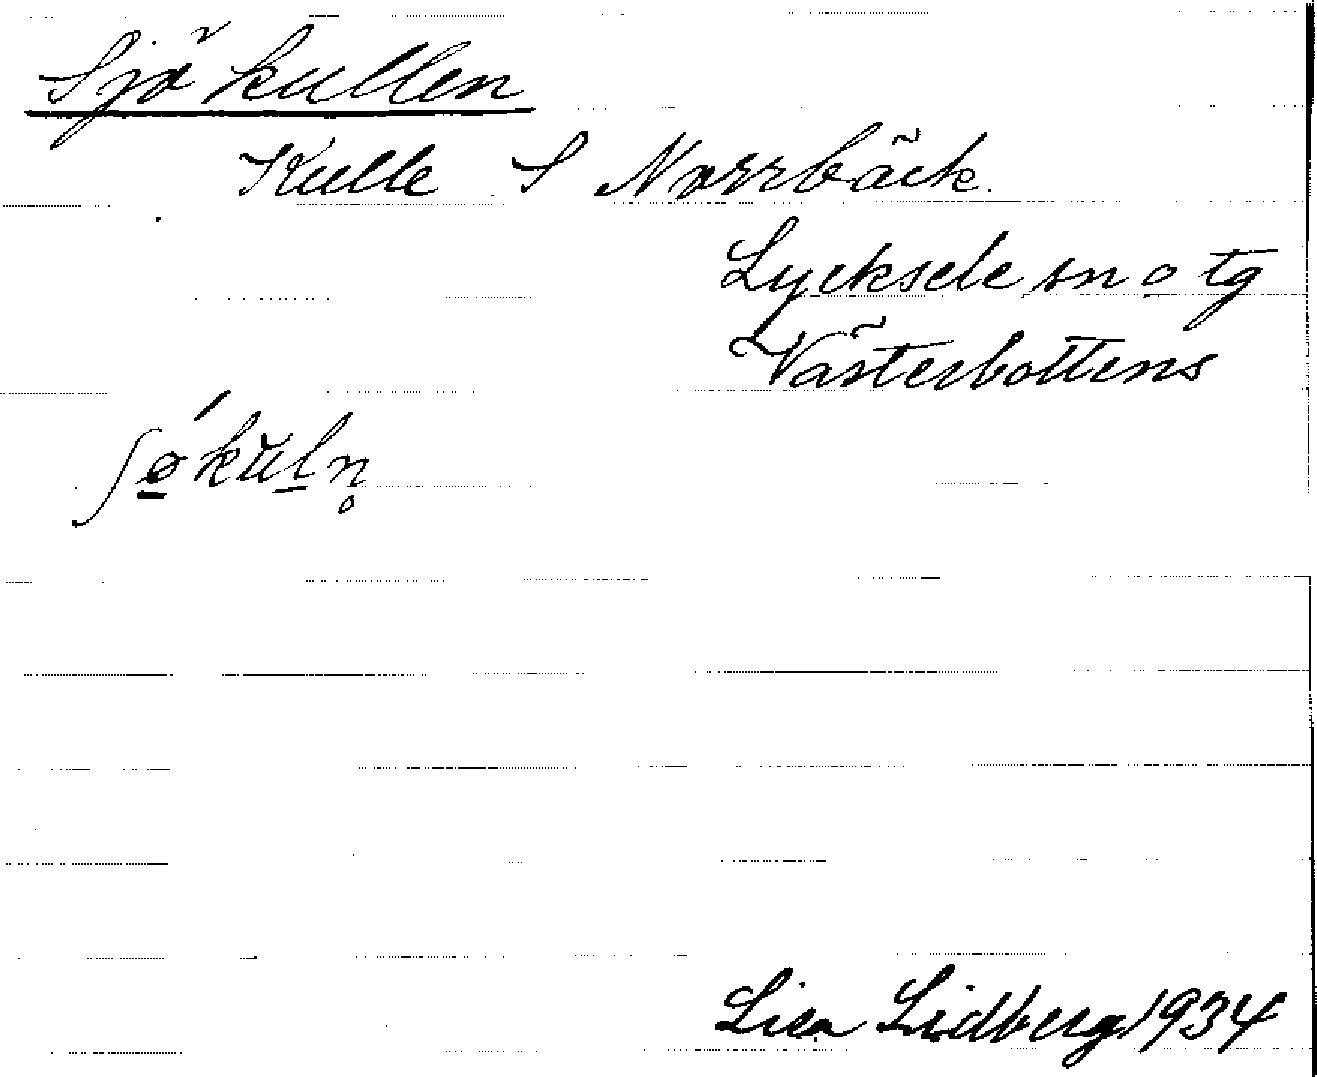 Sjökullen
Kulle S Norrbäck.
Lycksele sn o tg
Västerbottens
ʃǿ̱kuḻn̥
Lisa Lidberg 1934